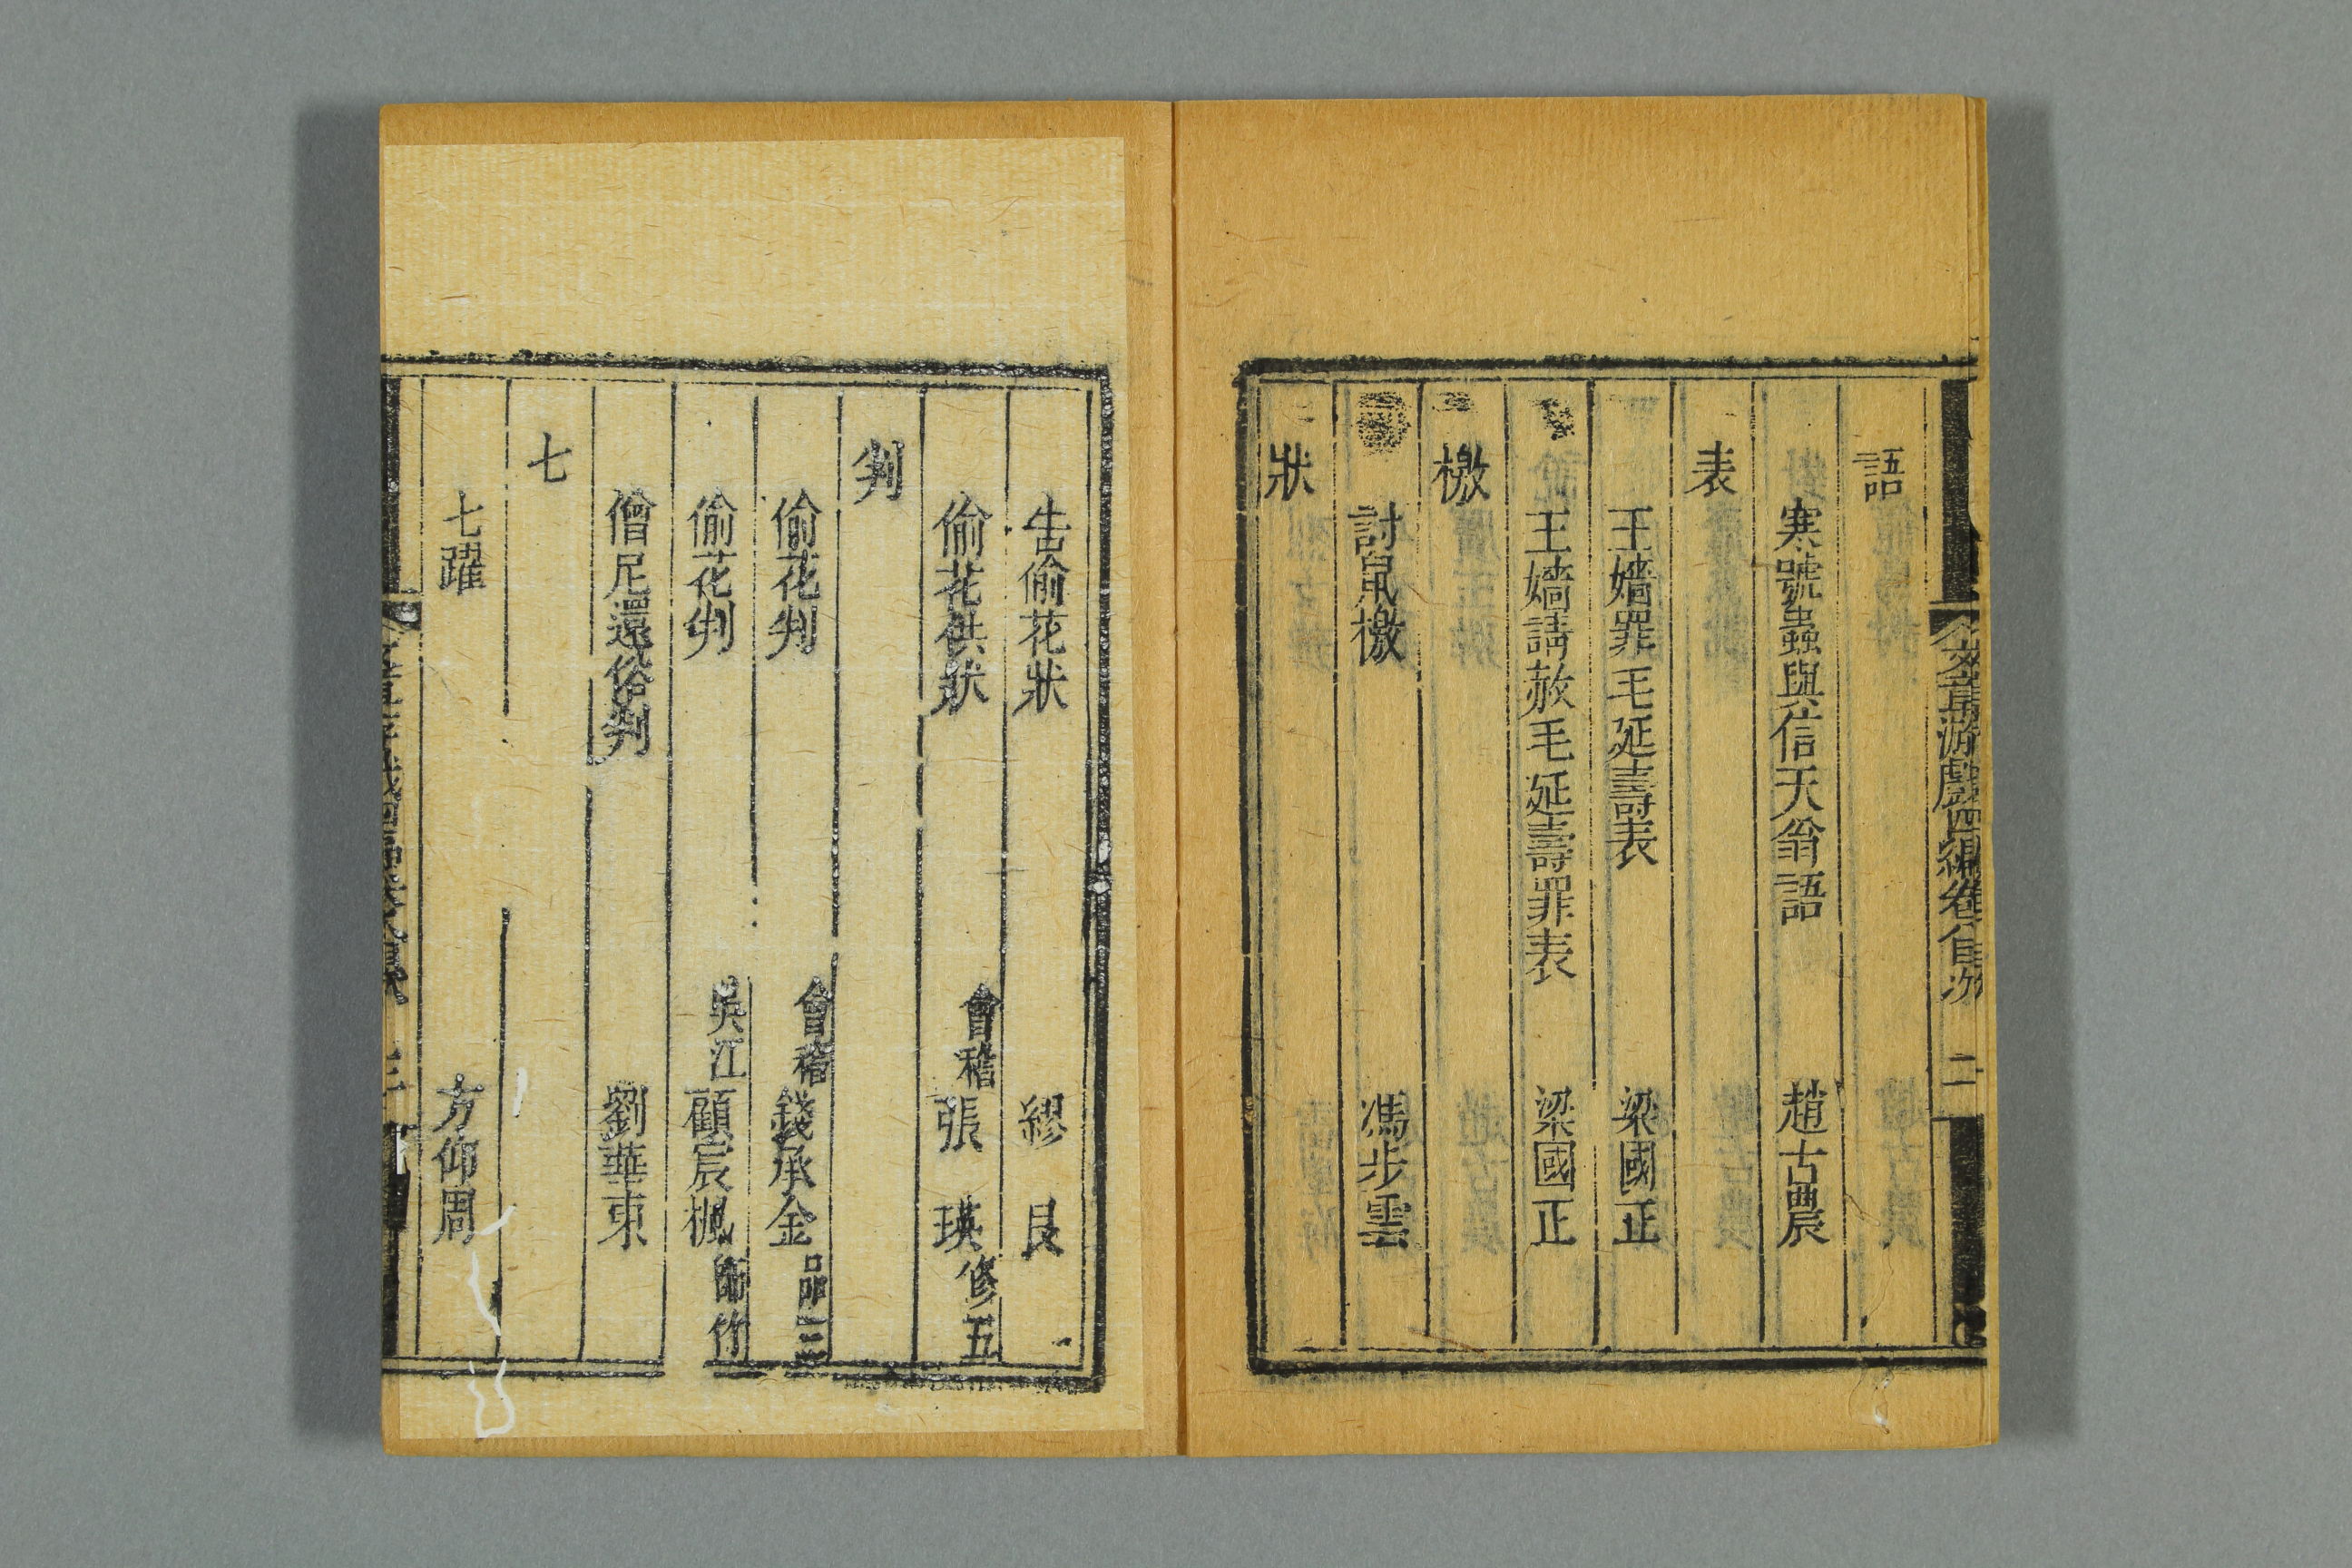 文章游戲四編卷八目次 二
語
寒號蟲與信天翁語 趙古農
表
王嬙罪毛延壽表 梁國正
王嬙請赦毛延壽罪表 梁國正
檄
討鼠檄 馮步雲
狀
告偷花狀 繆艮
偷花供狀 會稽張瑛修五
判
偷花判 會稽錢承金品三
偷花判 吳江顧宸楓師竹
僧尼還俗判 劉華東
七
七躍 方仰周
三